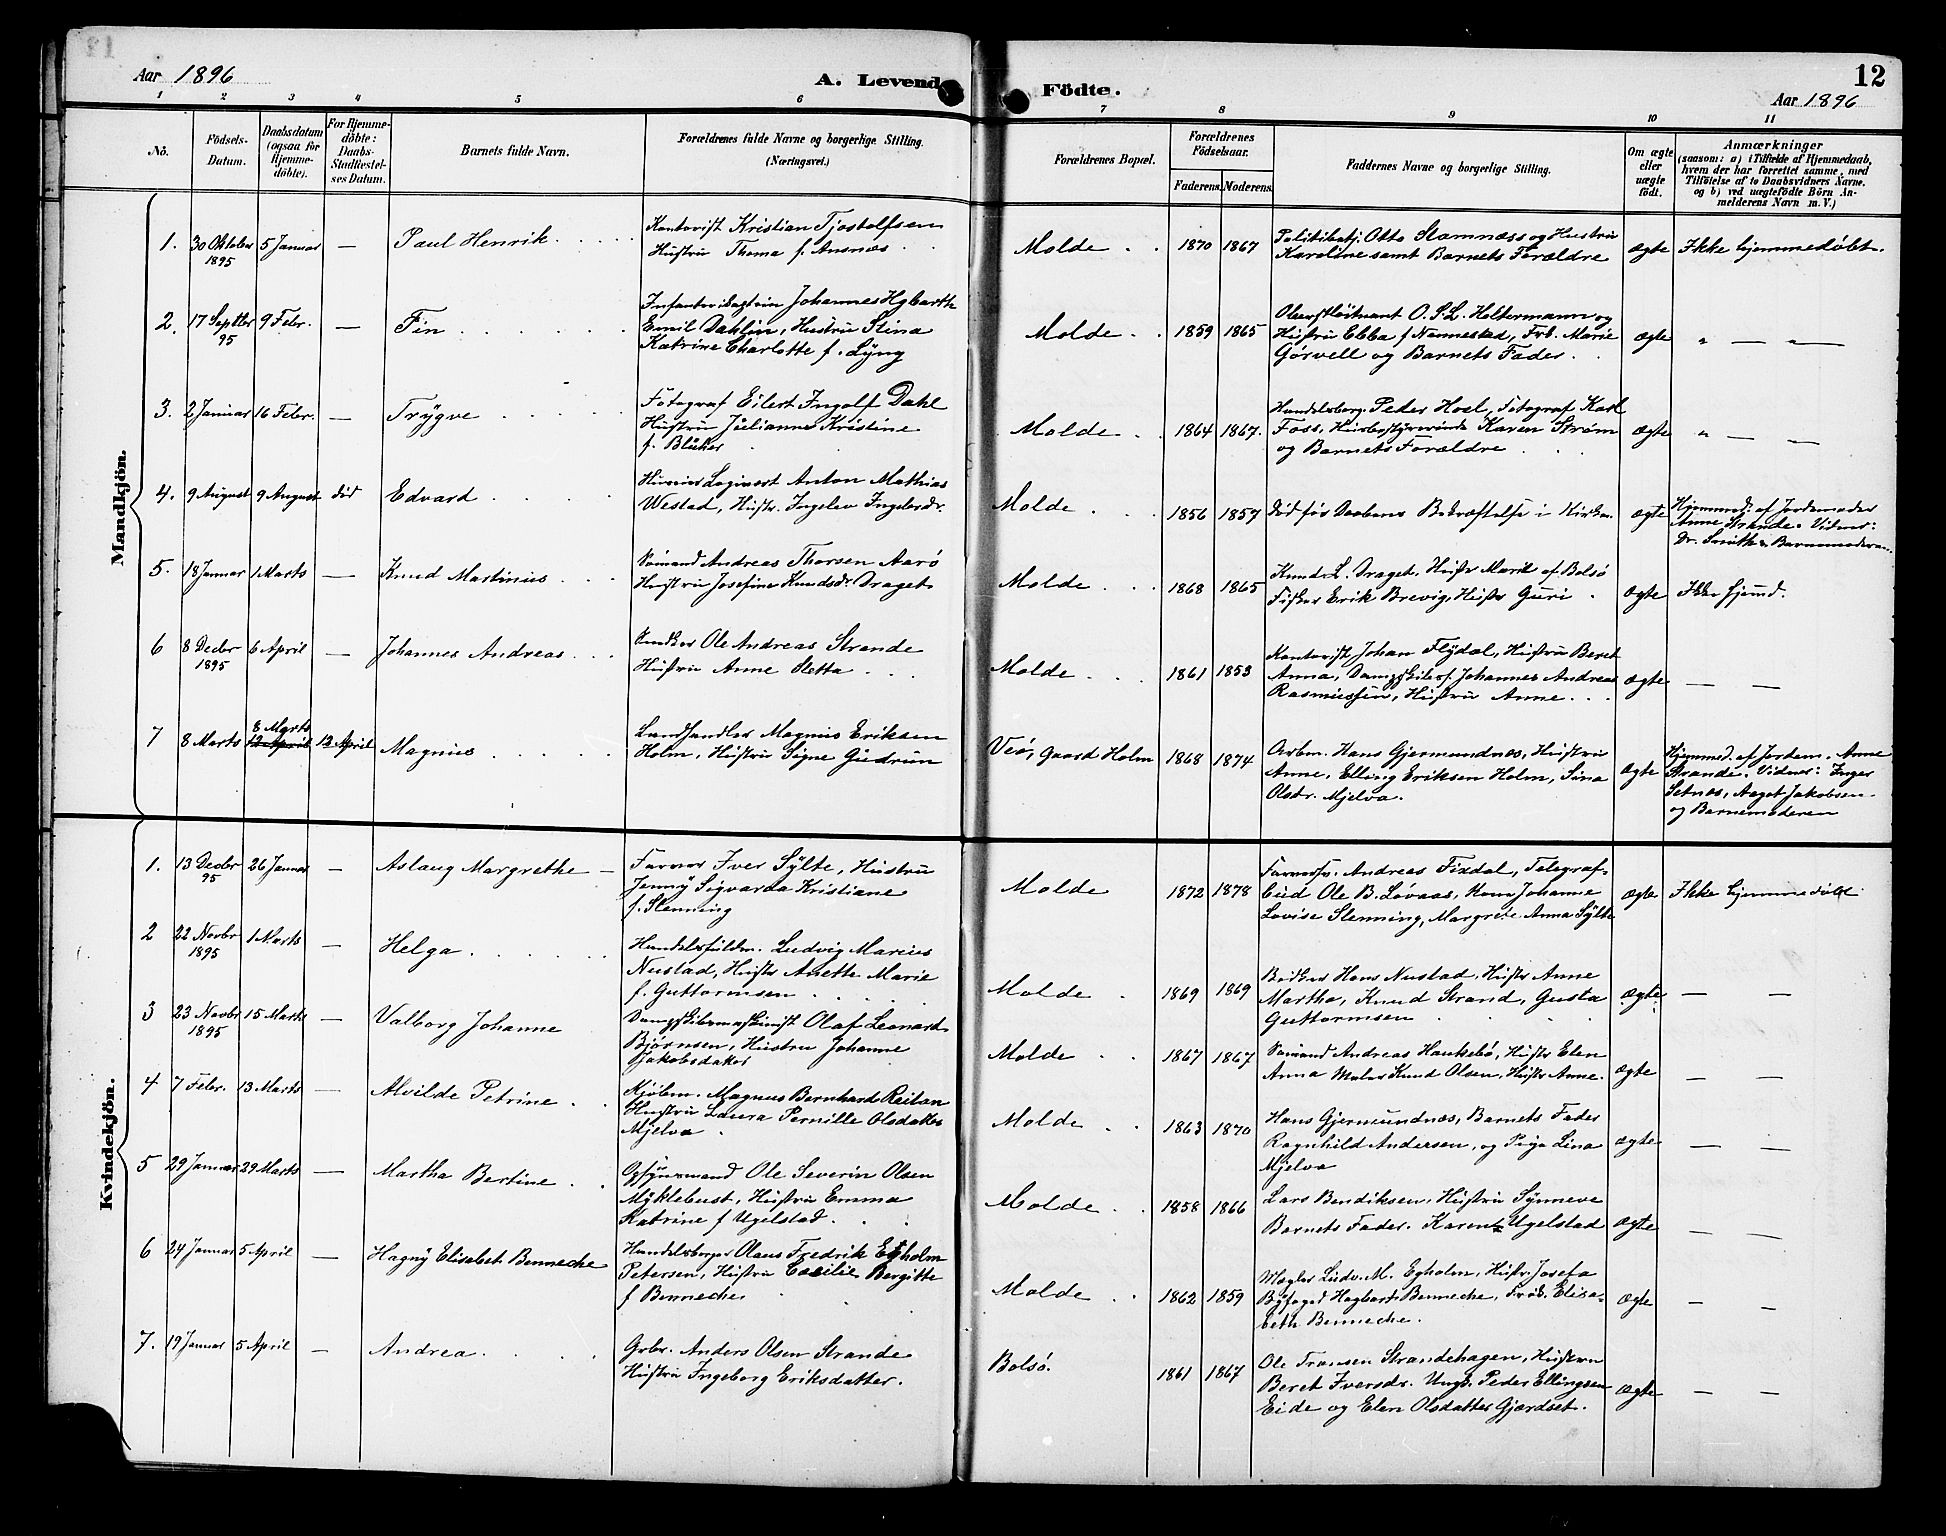 Aar 1896
A. Levende Födte.
12
Aar 1896
1 2 3 4 5 6 7 8 9 10 11
No.
Födsels-Datum.
Daabsdatum (ogsaa for Hjemme-döbte).
For Hjemme-döbte: Daabs-Stadfæstel-ses Datum.
Barnets fulde Navn.
Forældrenes fulde Navne og borgerlige Stilling. (Næringsvei.)
Forældrenes Bopæl.
Forældrenes Födselsaar.
Faderens. Moderens.
Faddernes Navne og borgerlige Stilling.
Om ægte eller uægte födt.
Anmærkninger
(saasom: a) i Tilfælde af Hjemmedaab,
hvem der har forrettet samme, med
Tilföielse af to Daabsvidners Navne,
og b) ved uægtefödte Börn An-
melderens Navn m. V.)
Mandkjön.
1. 30 Oktober 1895 5 Januar — Paul Henrik
Kontorist Kristian Tjostolfsen
Hustru Thoma f. Ansnæs
Molde 1870 1867
Politibetj. Otto Stamnæss og Hustru
Karoline samt Barnets Forældre
ægte Ikke hjemmedøbt.
2. 17 Septbr 95 9 Febr. — Fin
Johannes Hybarth
Emil Dahlin, Hustru Stina
Katrine Charlotte f. Lyng
Molde 1859 1865
Oberstløitnant O.P.L. Holtermann og
Hustru Ebba f Nannestad, Frk. Marie
Gørvell og Barnets Fader
ægte " — " —
3. 2 Januar 16 Febr. — Trygve
Fotograf Eilert Ingolf Dahl
Hustru Julianne Kristine
f. Blüker
Molde 1864 1867.
Handelsborg. Peder Hoel, Fotograf Karl
Foss, Husbestyrerinde Karen Strøm
og Barnets Forældre
ægte " — —
4. 9 August 9 August død Edvard
Anton Mathias
Westad, Hustr. Ingelev Ingebrdr.
Molde 1856 1857
Død før Daabens Bekræftelse i Kirken
ægte Hjemmed. af Jordemoder
Anne Strande. Vidner:
Dr. Smith & Barnemoderen
5. 18 Januar 1 Marts — Knud Martinius
Sømand Andreas Thorsen Aarø
Hustru Josefine Knudsdr. Draget
Molde 1868 1865
Knud L. Draget, Hustr Marit af Bolsø
Fisker Erik Brevig, Hustr Guri
ægte Ikke hjemd.
6 8 Decbr 1895 6 April — Johannes Andreas
Snedker Ole Andreas Strande
Hustru Anne Oletta
Molde 1861 1853
Kontorist Johan Flydal, Hustru Beret
Anna, Dampskibsf. Johannes Andreas
Rasmussen, Hustru Anne
ægte — —
7 8 Marts 8 Marts 12 April 12 April Magnus
Landhandler Magnus Eriksen
Holm, Hustru Signe Gudrun
Veø, Gaard Holm 1868 1874
Arbm. Hans Gjermundnes, Hustru
Anne, Elling Eriksen Holm, Sina
Olsdr. Mjelva.
ægte Hjemmed. af Jordem. Anne
Strande. Vidner: Inger
Setnes, Aaget Jakobsen
og Barnemoderen
Kvindekjön.
1. 13 Decbr 95 26 Januar — Aslaug Margrethe —
Farver Iver Sylte, Hustru
Jenny Sigvarda Kristiane
f. Slenning
Molde 1872 1878
Farversv. Andreas Fixdal, Telegraf-
bud Ole B. Løvaas, Kone Johanne
Lovise Slenning, Margrete Anna Sylte
ægte Ikke hjemmedøbt
2 22 Novbr 1895 1 Marts — Helga
Handelsfuldm. Ludvig Marius
Nustad, Hustr Anette Marie
f. Guttormsen
Molde 1869 1869
Bødker Hans Nustad, Hustr Anne
Martha, Knud Strand, Gusta
Guttormsen
ægte — —
3 23 Novbr 1895 15 Marts — Valborg Johanne
Dampskibsmaskinist Olaf Leonard
Bjørnsen, Hustru Johanne
Jakobsdatter
Molde 1867 1867
Sømand Andreas Haukebø, Hustr Elen
Anna Maler Knud Olsen, Hustr Anne
ægte — —
4 7 Febr. 13 Marts — Alvilde Petrine
Kjøbm. Magnus Bernhard Reitan
Hustru Laura Pernille Olsdatter
Mjelva
Molde 1863 1870
Hans Gjermundnes, Barnets Fader
Ragnhild Andersen, og Pige Lina
Mjelva
ægte — —
5 29 Januar 29 Marts — Martha Bertine
Opsynsmand Ole Severin Olsen
Myklebust, Hustru Emma
Katrine f Ugelstad
Molde 1858 1866
Lars Bendiksen, Hustru Synneve
Barnets Fader. Karen Ugelstad
ægte — —
6 24 Januar 5 April — Hagny Elisabet Benneche
Handelsborger Olaus Fredrik Egholm
Petersen, Hustru Cecilie Bergitte
f Benneche
Molde 1862 1859
Mægler Ludv. M. Egholm, Hustr. Josefa
Byfoged Hagbart Benneche, Frøk. Elisa-
beth Benneche.
ægte — —
7. 19 Januar 5 April — Andrea
Gbr. Anders Olsen Strande
Hustru Ingeborg Eriksdatter.
Bolsø. 1861 1867
Ole Fransen Strandehagen, Hustru
Beret Iversdr. Ungk. Peder Ellingsen
Eide og Elen Olsdatter Gjerdset.
ægte — —